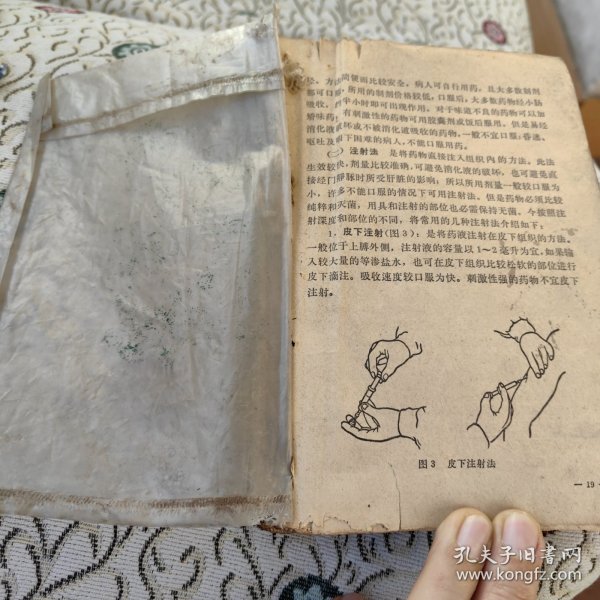 轻、方法简便而比较安全，病人可自行用药，且大多数制剂
都可口服，所用的制剂价格较低，口服后，大多数药物经小肠
吸收，约半小时即可出现作用。对于味道不良的药物可以加
矫味药；有刺激性的药物可用胶囊剂或饭后服用。但是易经
消化液破坏或不被消化道吸收的药物，一般不宜口服；昏迷、
呕吐及吞下困难的病人，不能口服用药。
(二) 注射法 是将药物直接注入组织内的方法。此法
生效较快，剂量比较准确，可避免消化液的破坏，也可避免直
接经门静脉时所受肝脏的影响；所以所用剂量一般较口服为
小，许多不能口服的情况下可用注射法。但是药物必须比较
纯粹和灭菌，用具和注射的部位也必需保持无菌。今按照注
射深度和部位的不同，将常用的几种注射法介绍如下：
1. 皮下注射(图3)：是将药液注射在皮下组织的方法。
一般位于上膊外侧，注射液的容量以1～2毫升为宜，如果输
入较大量的等渗盐水，也可在皮下组织比较松软的部位进行
皮下滴注。吸收速度较口服为快。刺激性强的药物不宜皮下
注射。
图3 皮下注射法
— 19 —
孔夫子旧书网
www.kongfz.com